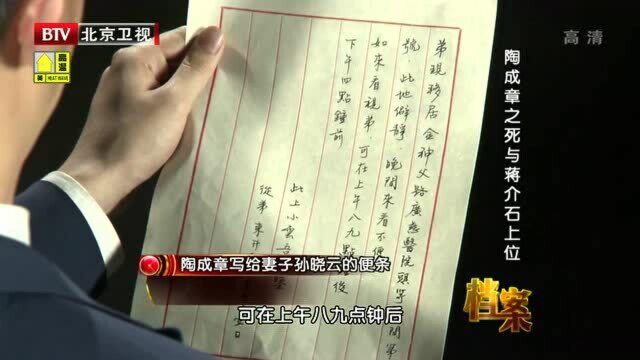 BTV 北京卫视
高温
黄
HEAT WAVE
高清
陶成章之死与蒋介石上位
弟現移居金神父路廣慈醫院頭等間第
號,此地僻静,晚間來看不便
如來看視弟,可在上午八九點
後
下午四點鐘前
此上小雲
從弟 東
日
陶成章写给妻子孙晓云的便条
可在上午八九点钟后
档案